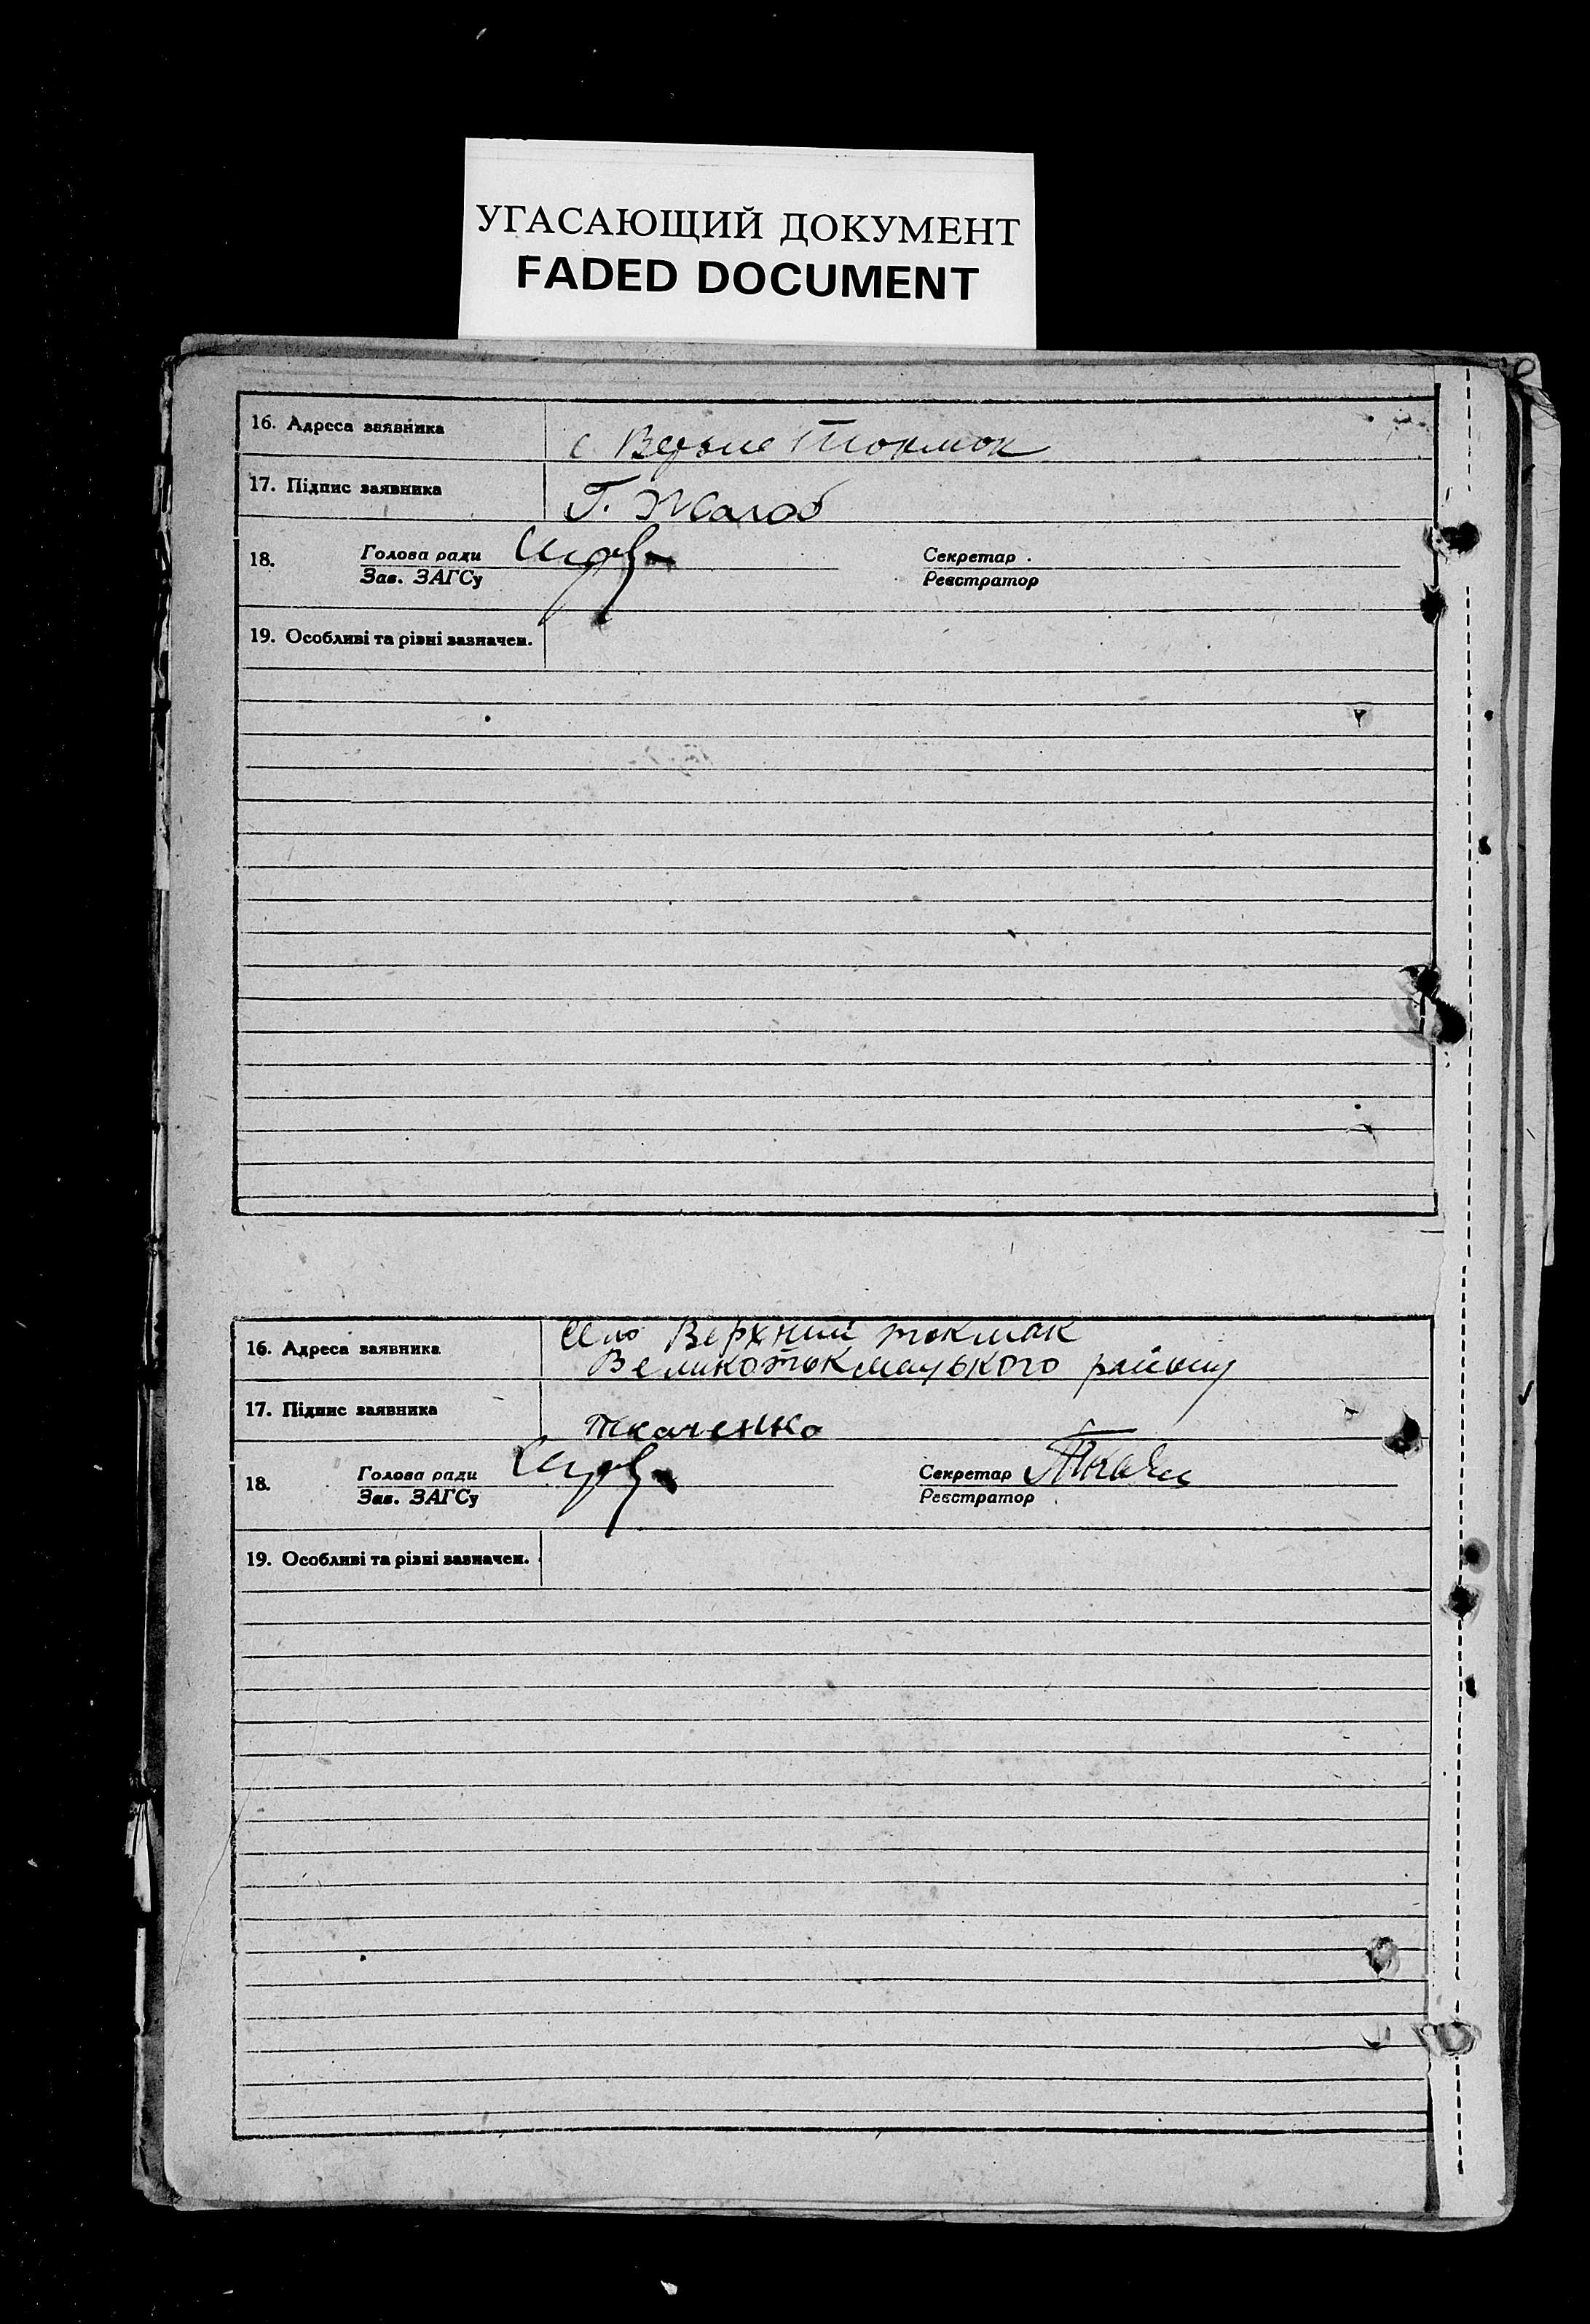 УГАСАЮЩИЙ ДОКУМЕНТ
FADED DOCUMENT
16. Адреса заявника
с Верхне Токмак
17. Підпис заявника
Г. Жалоб
18. Голова ради Секретар
Зав. ЗАГСу Реєстратор
19. Особливі та різні зазначен.
16. Адреса заявника
село Верхний токмак
Великотокмацького району
17. Підпис заявника
Ткаченко
18. Голова ради Секретар
Зав. ЗАГСу Реєстратор
19. Особливі та різні зазначен.